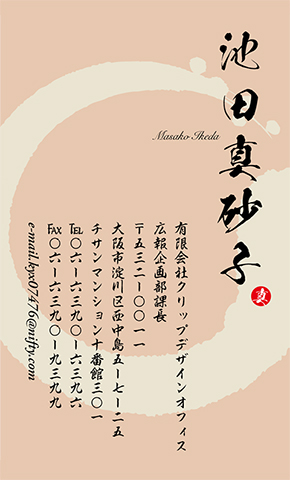 池田真砂子
Masako Ikeda
真
有限会社クリップデザインオフィス
広報企画部課長
〒五三二－〇〇一一
大阪市淀川区西中島五－七－二五
チサンマンション十番館三〇一
TEL〇六－六三九〇－六三九六
FAX〇六－六三九〇－九三九九
e-mail.kyx07476@nifty.com